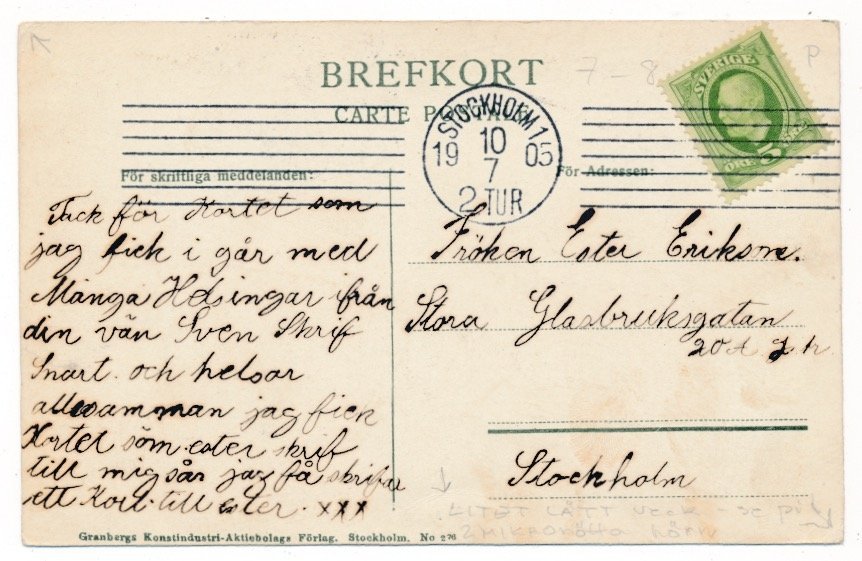 BREFKORT
7-8
P
CARTE POSTALE
STOCKHOLM 1
10
19 05
7
2 TUR
SVERIGE
5
ÖRE
För skriftliga meddelanden:
För Adressen:
Tack för Kortet som
jag fick i går med
Många Helsingar ifrån
din vän Sven Skrif
Snart och helsar
allesamman jag fick
Kortet som ester skrif
till mig sår jag få skrifva
ett Kort till ester. xxx
Fröken Ester Erikson.
Stora Glasbruksgatan
20A
Stockholm
LITET LÄTT VECK - SE
2 MIKRO
Granbergs Konstindustri-Aktiebolags Förlag. Stockholm. No 276